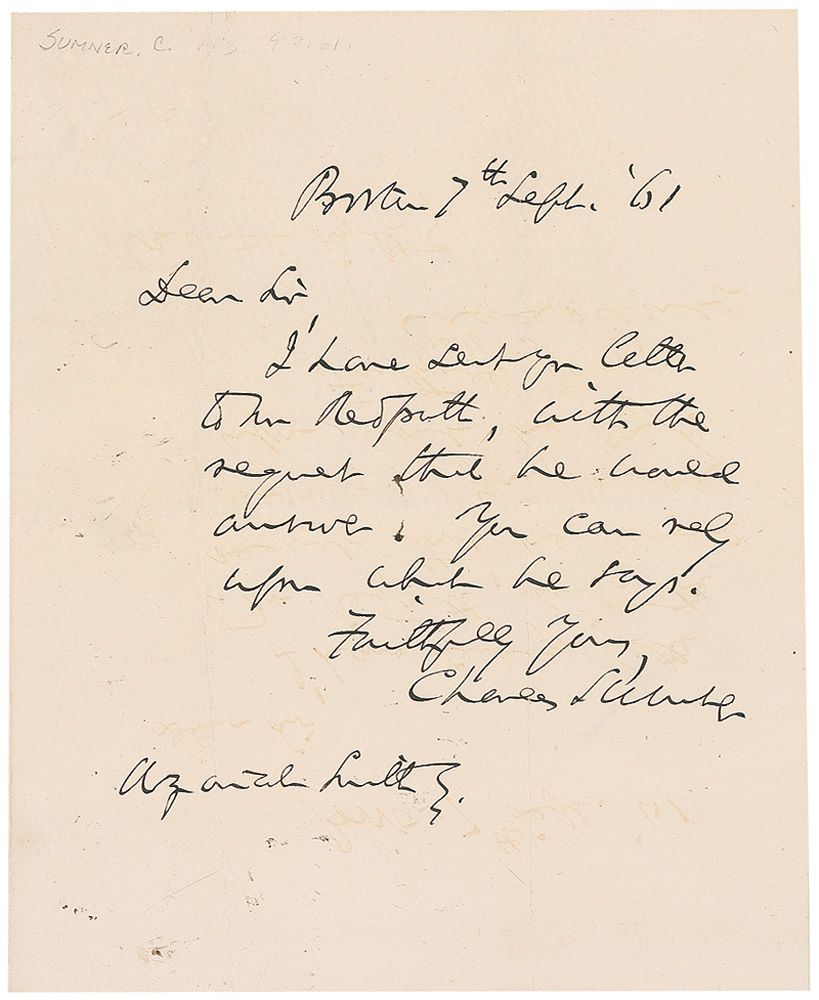 SUMNER, C. ALS 9.7.61.
Boston 7th Sept. '61
Dear Sir,
I have sent yr letter
to Mr Redpath, with the
request that he would
answer. You can rely
upon what he says.
Faithfully Yours,
Charles Sumner
Azariah Smith